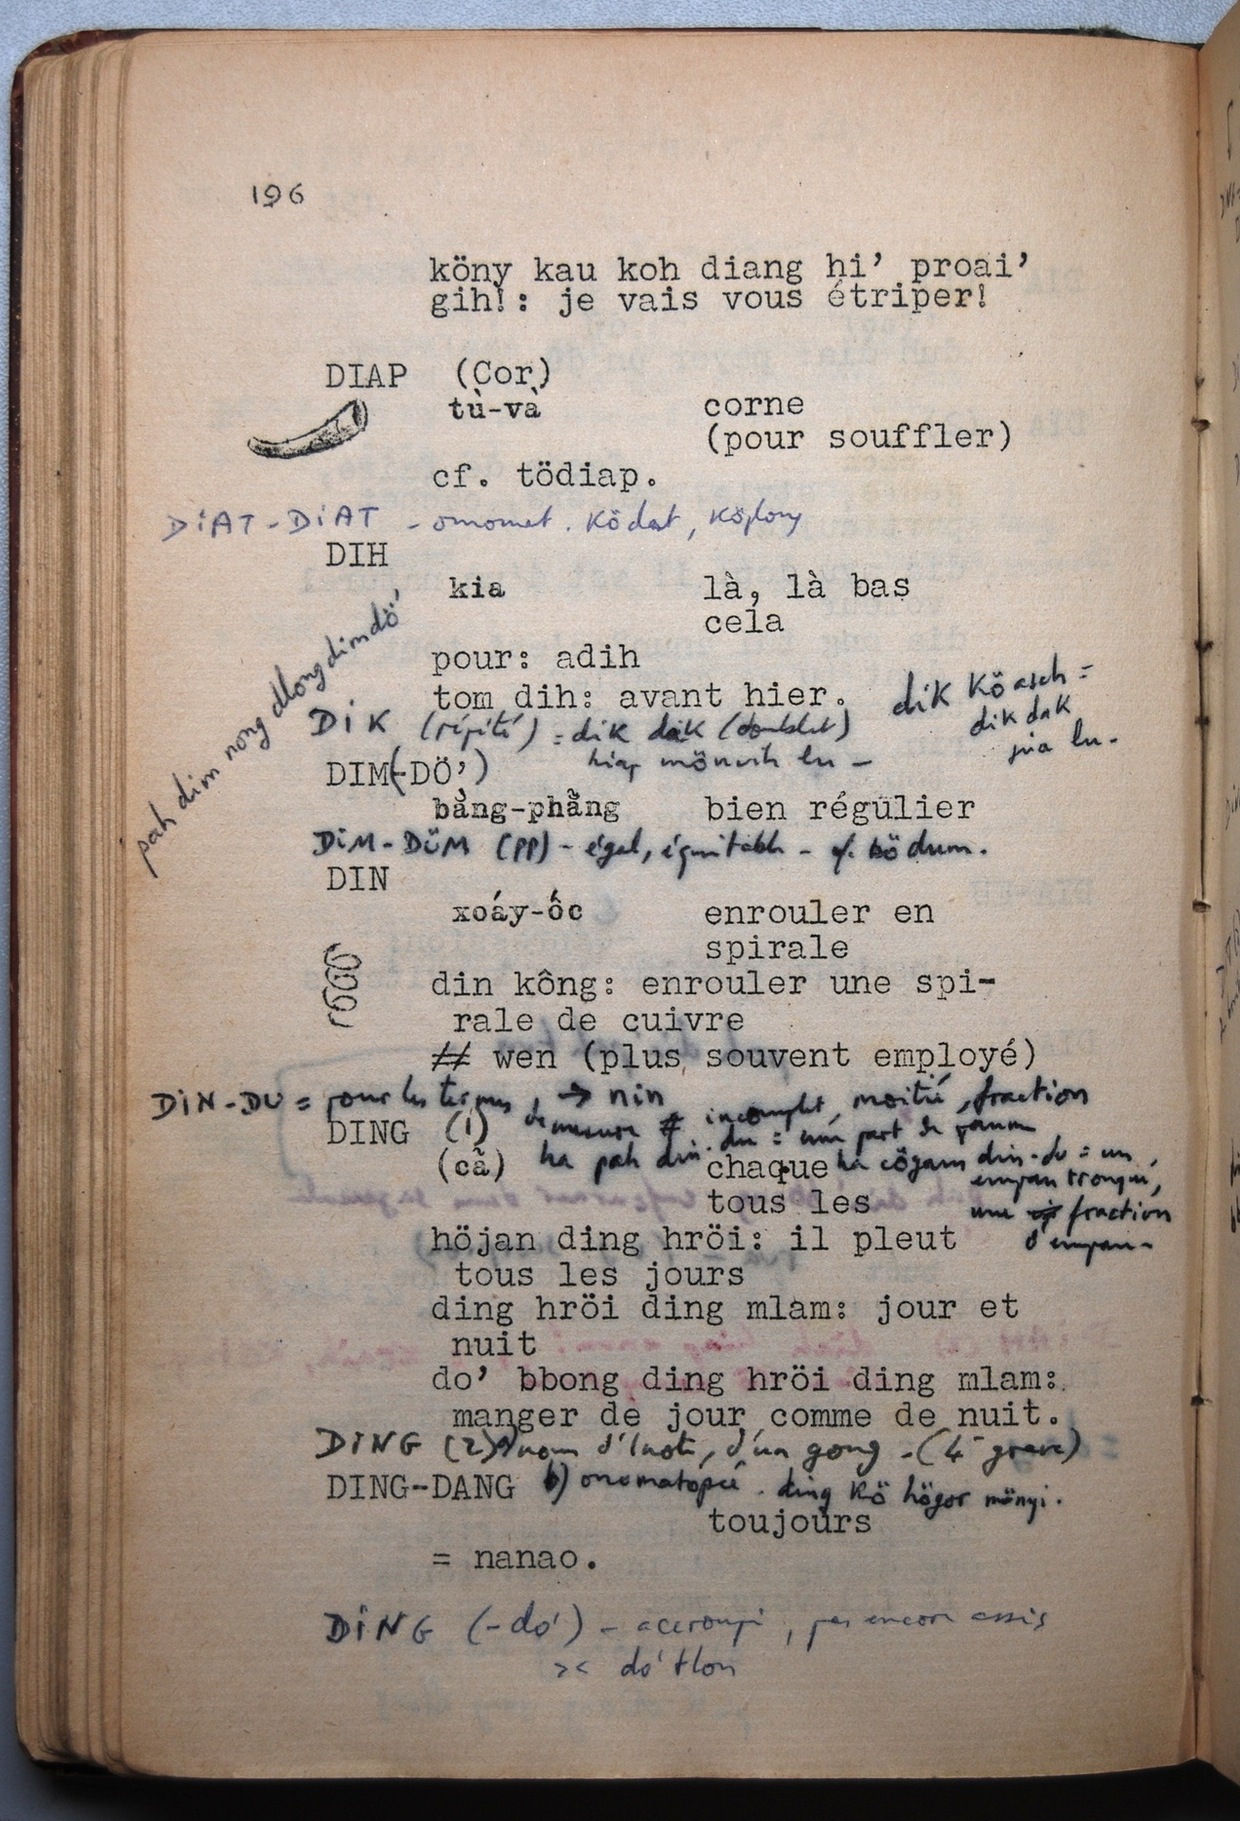 196
köny kau koh diang hi’ proai’
gih!: je vais vous étriper!
DIAP (Cor)
tù-và corne
(pour souffler)
cf. tödiap.
DIAT-DIAT - onomat. Ködat, Köplong
DIH
kia là, là bas
cela
pour: adih
tom dih: avant hier.
pah dim nong dlong dim dö'
DIK (répété) = dik dak (doublet)
dik Kö =
dik dak
lu.
DIM(-DÖ’)
bằng-phẳng bien régulier
DIM-DÜM (PP) - égal, équitable - cf. ködum.
DIN
xoáy-ốc enrouler en
spirale
din kông: enrouler une spi-
rale de cuivre
≠ wen (plus souvent employé)
DIN-DU = pour les termes → nin
de mesure ≠ incomplet, moitié, fraction
DING (1)
ha pah din-du = une part de
(cả) chaque
ha cögam din-du = un
empan tronqué,
une fraction
d'empan-
tous les
höjan ding hröi: il pleut
tous les jours
ding hröi ding mlam: jour et
nuit
do’ bbong ding hröi ding mlam:
manger de jour comme de nuit.
DING (2) a) nom d'une note, d'un gong - (4e grave)
DING-DANG b) onomatopée. ding Kö högor mönyi.
toujours
= nanao.
DING (-do') - accroupi, pas encore assis
>< do' tlon